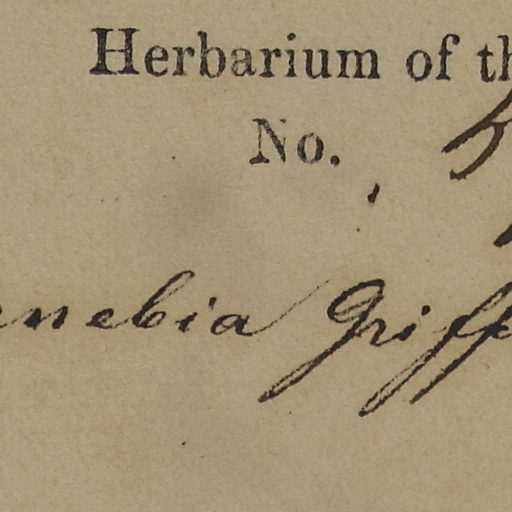 Herbarium of th
No. 5
rnebia Griff